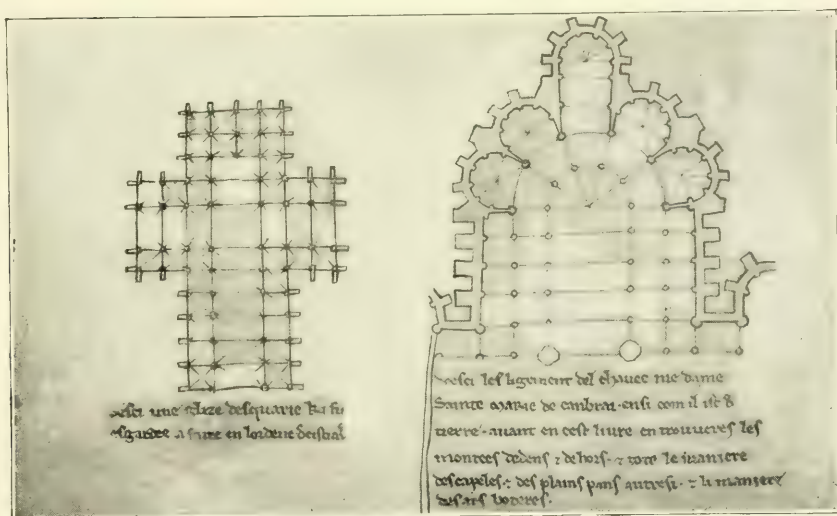 vesci une glize desquarie ki fu
esgardee a faire en lordene decistiaus
vesci les ligement del chavec me dame
Sainte marie de canbrai · ensi com il ist de
tierre · avant en cest livre en trouveres les
montees dedens ⁊ dehors · ⁊ tote le maniere
des capeles · ⁊ des plains pans autresi · ⁊ li maniere
des ars boteres ·